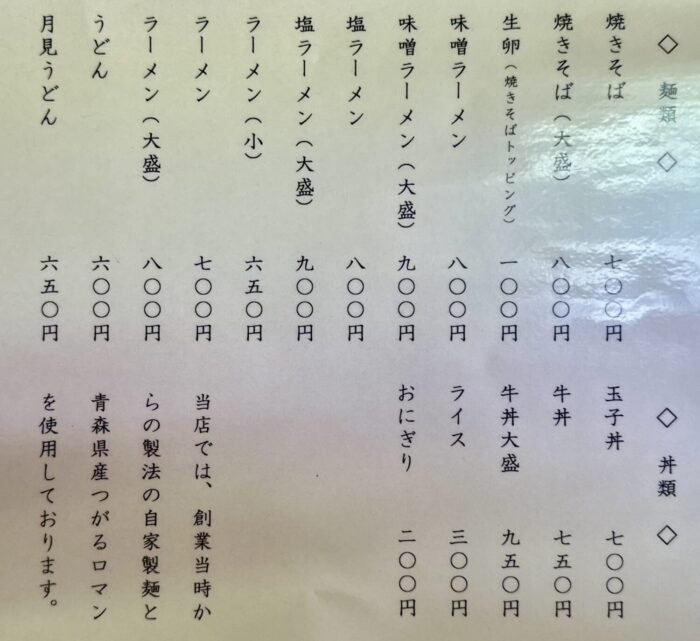 ◇ 麺類 ◇
焼きそば 七〇〇円
焼きそば(大盛) 八〇〇円
生卵(焼きそばトッピング) 一〇〇円
味噌ラーメン 八〇〇円
味噌ラーメン(大盛) 九〇〇円
塩ラーメン 八〇〇円
塩ラーメン(大盛) 九〇〇円
ラーメン(小) 六五〇円
ラーメン 七〇〇円
ラーメン(大盛) 八〇〇円
うどん 六〇〇円
月見うどん 六五〇円
◇ 丼類 ◇
玉子丼 七〇〇円
牛丼 七五〇円
牛丼大盛 九五〇円
ライス 三〇〇円
おにぎり 二〇〇円
当店では、創業当時か
らの製法の自家製麺と
青森県産つがるロマン
を使用しております。